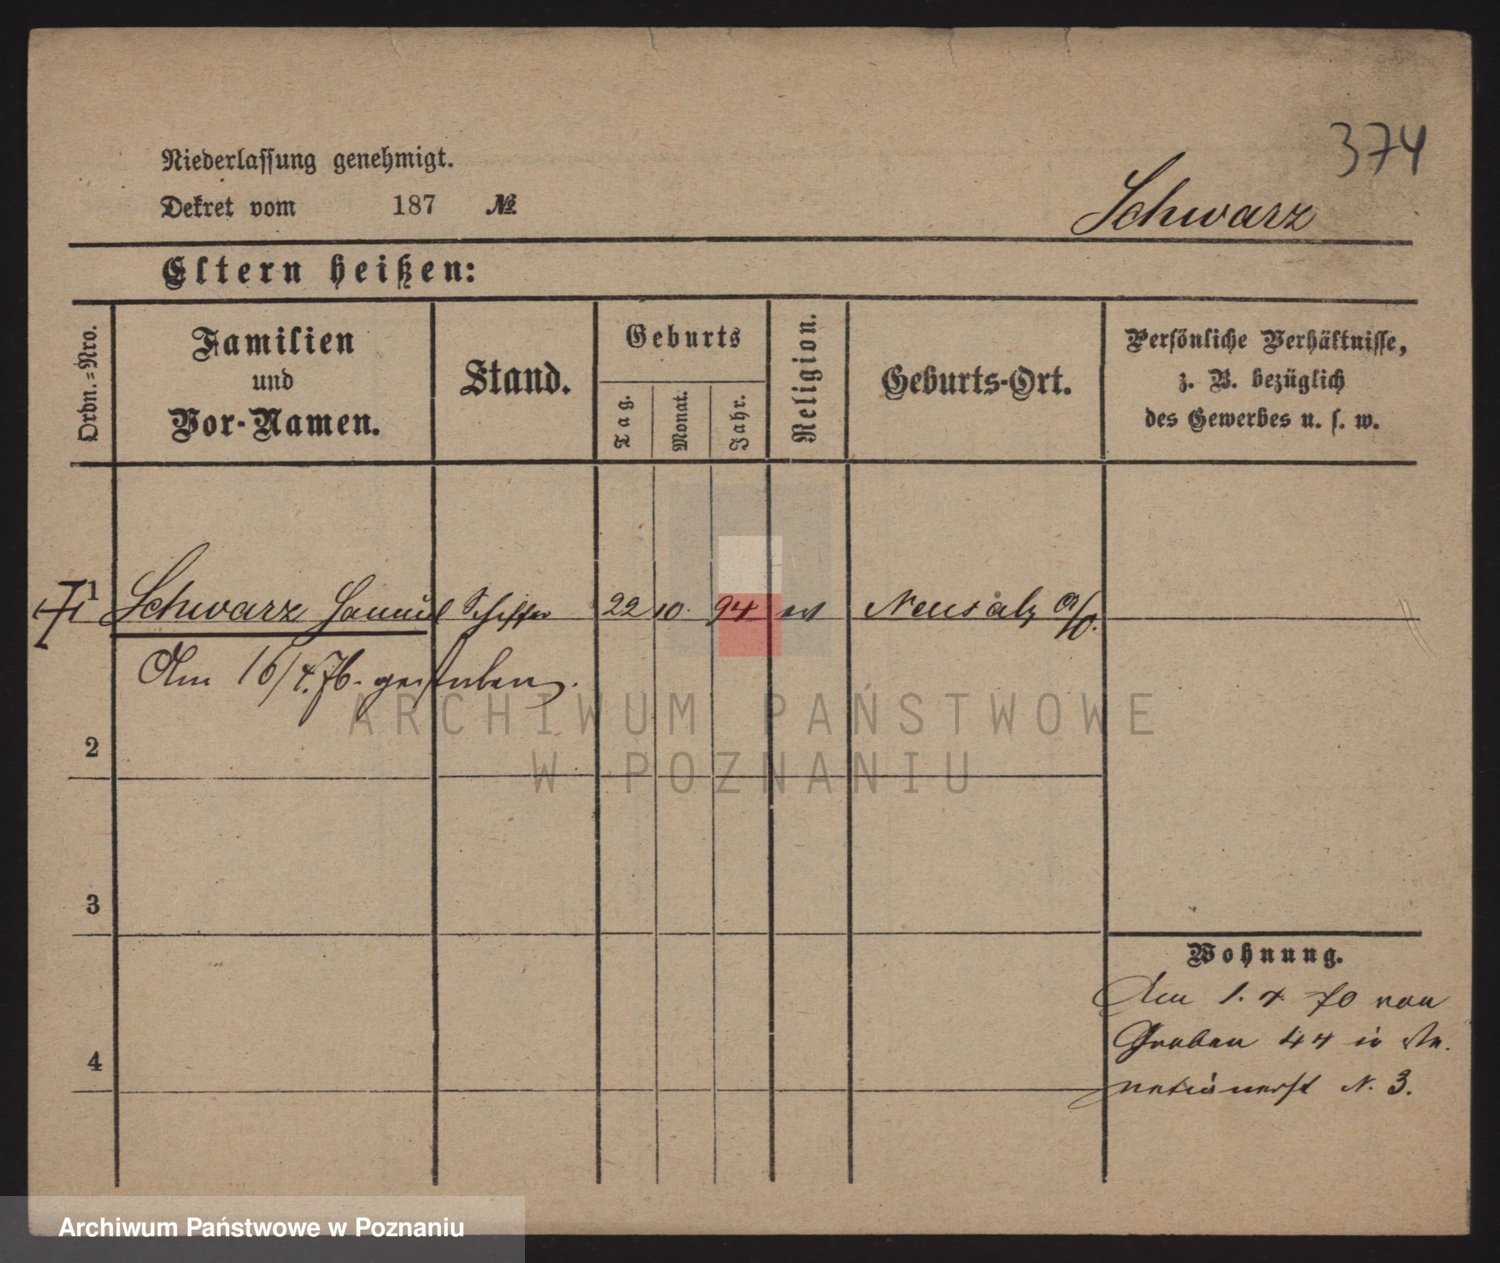 374
Niederlassung genehmigt.
Dekret vom 187 №
Schwarz
Eltern heißen:
Ordn.-Nro.
Familien und Vor-Namen.
Stand.
Geburts
Tag.
Monat.
Jahr.
Religion.
Geburts-Ort.
Persönliche Verhältnisse,
z. B. bezüglich
des Gewerbes u. s. w.
1 Schwarz Samuel Schiffer 22 10. 94 ev Neusalz a/O.
Am 16/4.76. gestorben.
ARCHIWUM PAŃSTWOWE
W POZNANIU
2
3
4
Wohnung.
Am 1. 4. 70 von
Graben 44 in Ve
netianerst N. 3.
Archiwum Państwowe w Poznaniu